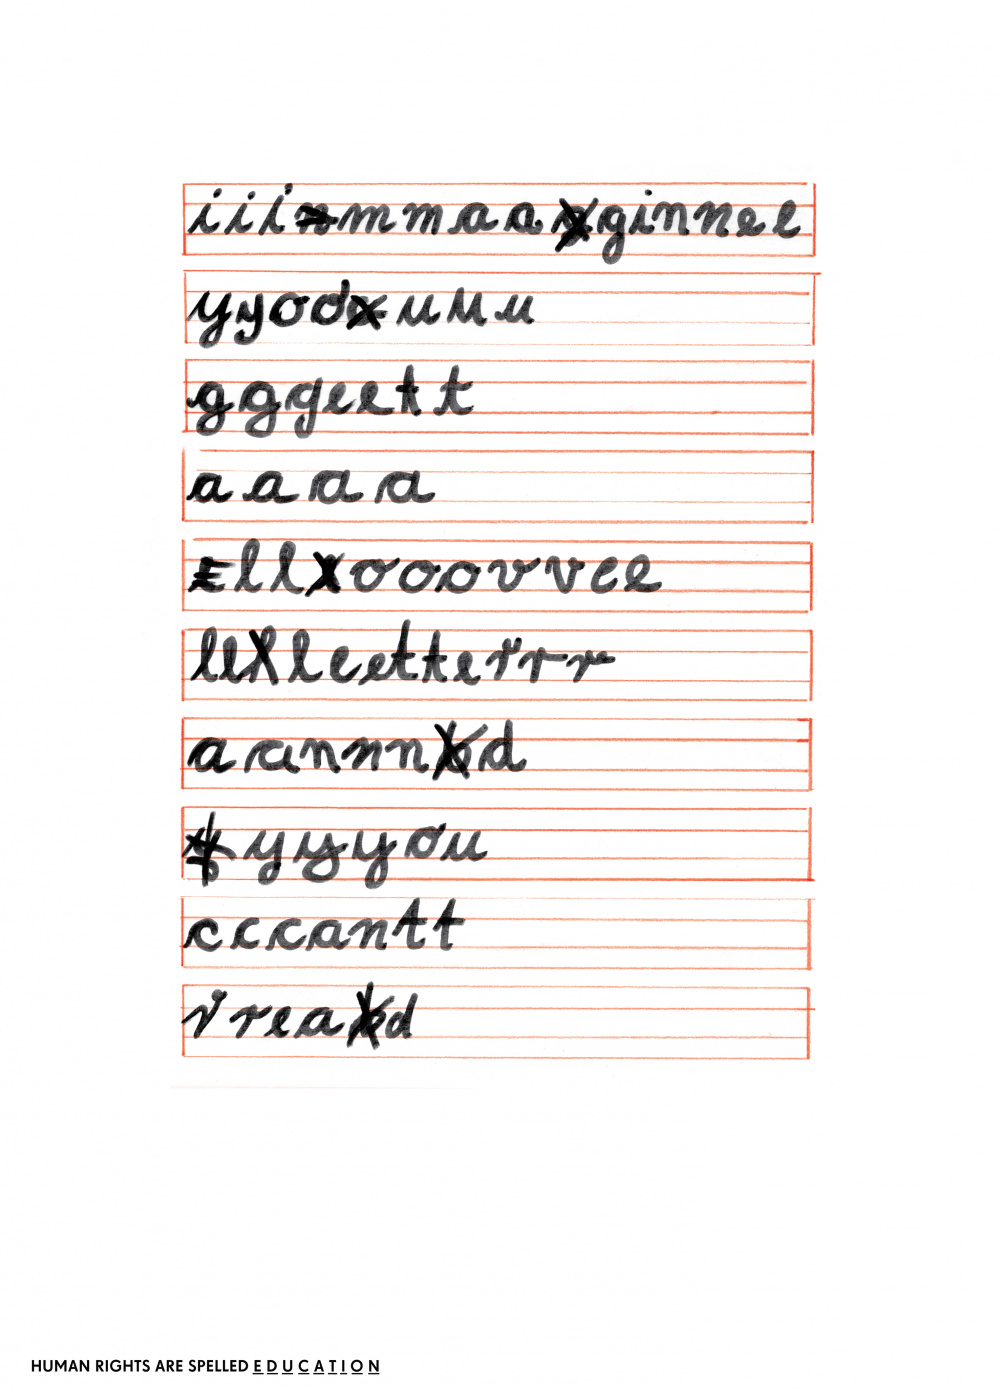 iiimmaaginnee
yyoouuu
gggeett
aaaa
lloooovvee
lllleetttterrr
aannnnd
yyyou
cccantt
rread
HUMAN RIGHTS ARE SPELLED EDUCATION